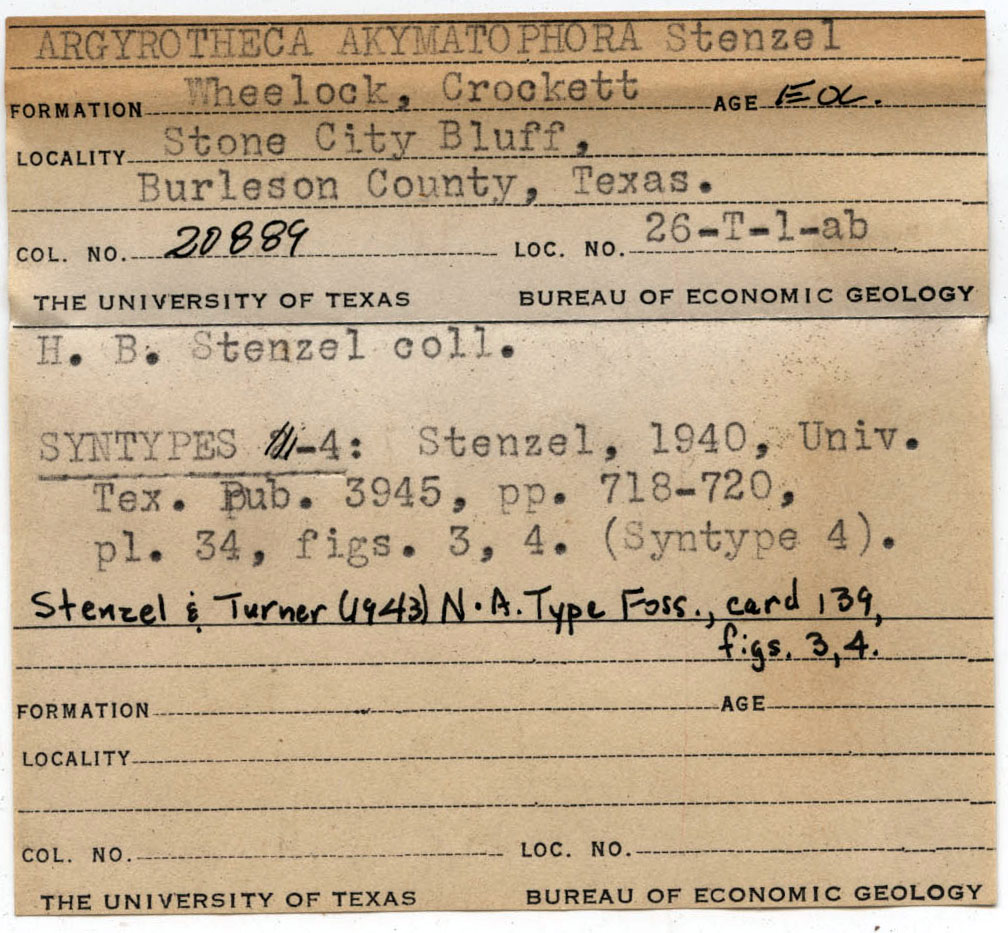 ARGYROTHECA AKYMATOPHORA Stenzel
FORMATION Wheelock, Crockett AGE Eoc.
LOCALITY Stone City Bluff,
Burleson County, Texas.
COL. NO. 20889 LOC. NO. 26-T-1-ab
THE UNIVERSITY OF TEXAS BUREAU OF ECONOMIC GEOLOGY
H. B. Stenzel coll.
SYNTYPES -4: Stenzel, 1940, Univ.
Tex. Pub. 3945, pp. 718-720,
pl. 34, figs. 3, 4. (Syntype 4).
Stenzel & Turner (1943) N.A. Type Foss., card 139,
figs. 3, 4.
FORMATION AGE
LOCALITY
COL. NO. LOC. NO.
THE UNIVERSITY OF TEXAS BUREAU OF ECONOMIC GEOLOGY